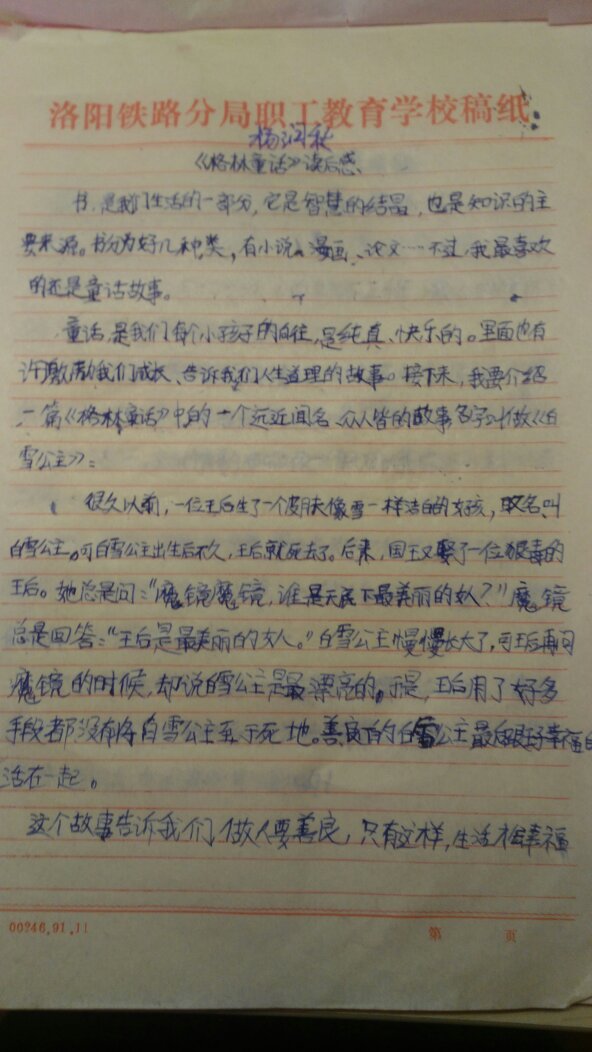 洛阳铁路分局职工教育学校稿纸
杨润秋
《格林童话》读后感
书,是我们生活的一部分,它是智慧的结晶,也是知识的主
要来源。书分为好几种类,有小说、漫画、论文……不过,我最喜欢
的还是童话故事。
童话,是我们每个小孩子的向往,是纯真、快乐的。里面也有
许激励我们成长、告诉我们人生道理的故事。接下来,我要介绍
一篇《格林童话》中的一个远近闻名、众人皆的故事名字叫做《白
雪公主》:
很久以前,一位王后生了一个皮肤像雪一样洁白的女孩,取名叫
白雪公主。可白雪公主出生后不久,王后就死去了。后来,国王又娶了一位狠毒的
王后。她总是问:“魔镜魔镜,谁是天底下最美丽的女人?”魔镜
总是回答:“王后是最美丽的女人。”白雪公主慢慢长大了,可王后再问
魔镜的时候,却说白雪公主是最漂亮的。于是,王后用了好多
手段都没有将白雪公主至于死地。善良的白雪公主最后
活在一起。
这个故事告诉我们做人要善良,只有这样,生活才幸福
00246.91.11
第 页